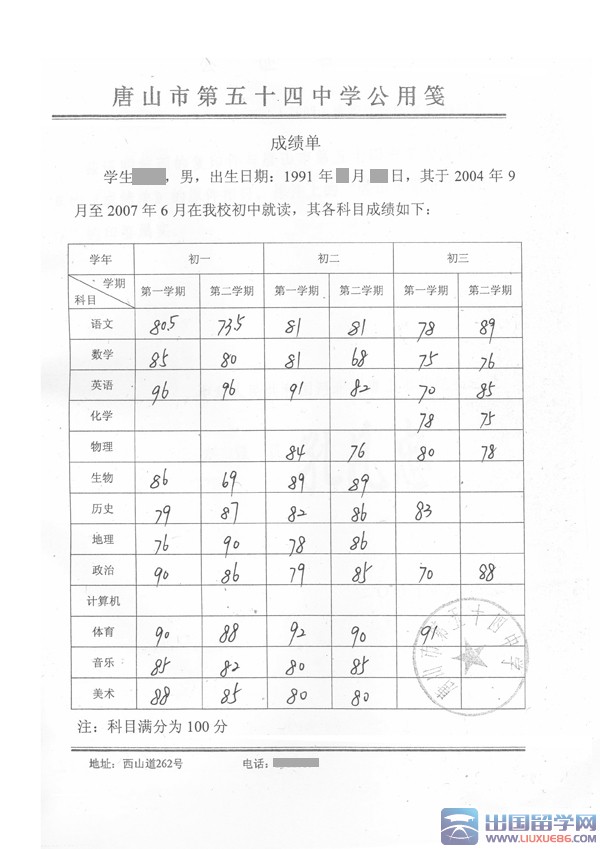 唐山市第五十四中学公用笺
成绩单
学生 ，男，出生日期：1991 年 月 日，其于 2004 年 9
月至 2007 年 6 月在我校初中就读，其各科目成绩如下：
学年 初一 初二 初三
学期 科目 第一学期 第二学期 第一学期 第二学期 第一学期 第二学期
语文 80.5 73.5 81 81 78 89
数学 85 80 81 68 75 76
英语 96 96 91 82 70 85
化学 78 75
物理 84 76 80 78
生物 86 69 89 89
历史 79 87 82 86 83
地理 76 90 78 86
政治 90 86 79 85 70 88
计算机
体育 90 88 92 90 91
音乐 85 82 80 85
美术 88 85 80 80
唐山市第五十四中学
注：科目满分为 100 分
地址：西山道262号 电话：
出国留学网
WWW.LIUXUE86.COM